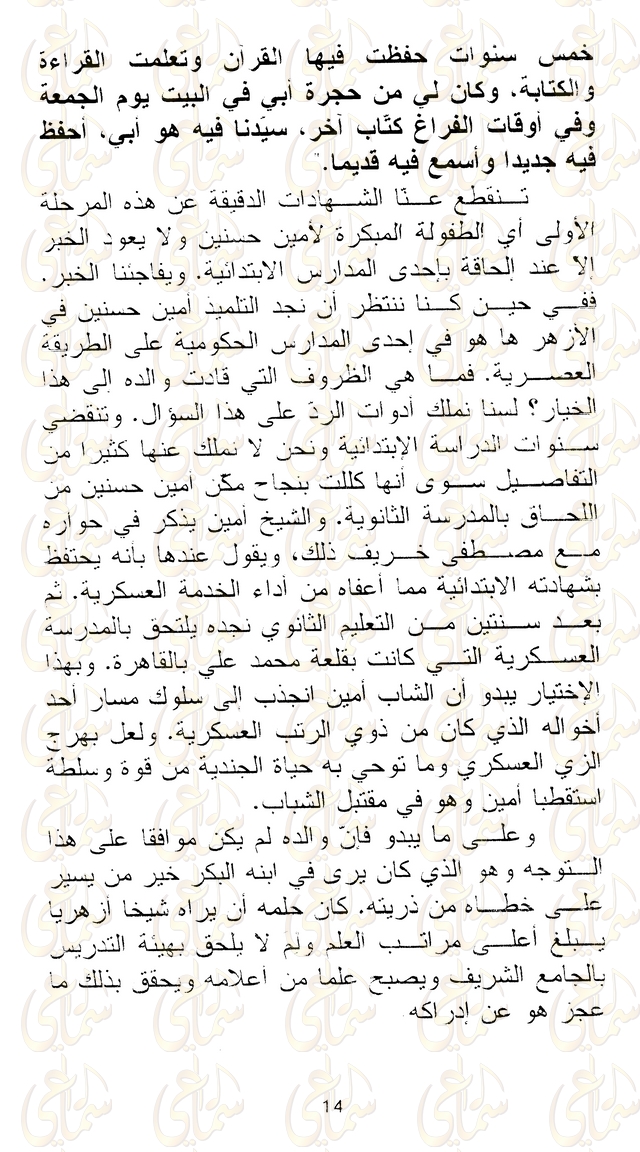 خمس سنوات حفظت فيها القرآن وتعلمت القراءة
والكتابة، وكان لي من حجرة أبي في البيت يوم الجمعة
وفي أوقات الفراغ كتّاب آخر، سيّدنا فيه هو أبي، أحفظ
فيه جديدا وأسمع فيه قديما."
تنقطع عنّا الشهادات الدقيقة عن هذه المرحلة
الأولى أي الطفولة المبكرة لأمين حسنين ولا يعود الخبر
إلا عند إلحاقة بإحدى المدارس الابتدائية. ويفاجئنا الخبر.
ففي حين كنا ننتظر أن نجد التلميذ أمين حسنين في
الأزهر ها هو في إحدى المدارس الحكومية على الطريقة
العصرية. فما هي الظروف التي قادت والده إلى هذا
الخيار؟ لسنا نملك أدوات الردّ على هذا السؤال. وتنقضي
سنوات الدراسة الإبتدائية ونحن لا نملك عنها كثيرا من
التفاصيل سوى أنها كللت بنجاح مكّن أمين حسنين من
اللحاق بالمدرسة الثانوية. والشيخ أمين يذكر في حواره
مع مصطفى خريف ذلك، ويقول عندها بأنه يحتفظ
بشهادته الابتدائية مما أعفاه من أداء الخدمة العسكرية. ثم
بعد سنتين من التعليم الثانوي نجده يلتحق بالمدرسة
العسكرية التي كانت بقلعة محمد علي بالقاهرة. وبهذا
الإختيار يبدو أن الشاب أمين انجذب إلى سلوك مسار أحد
أخواله الذي كان من ذوي الرتب العسكرية. ولعل بهرج
الزي العسكري وما توحي به حياة الجندية من قوة وسلطة
استقطبا أمين وهو في مقتبل الشباب.
وعلى ما يبدو فإنّ والده لم يكن موافقا على هذا
التوجه وهو الذي كان يرى في ابنه البكر خير من يسير
على خطاه من ذريته. كان حلمه أن يراه شيخا أزهريا
يبلغ أعلى مراتب العلم ولمَ لا يلحق بهيئة التدريس
بالجامع الشريف ويصبح علما من أعلامه ويحقق بذلك ما
عجز هو عن إدراكه
14
سماعي